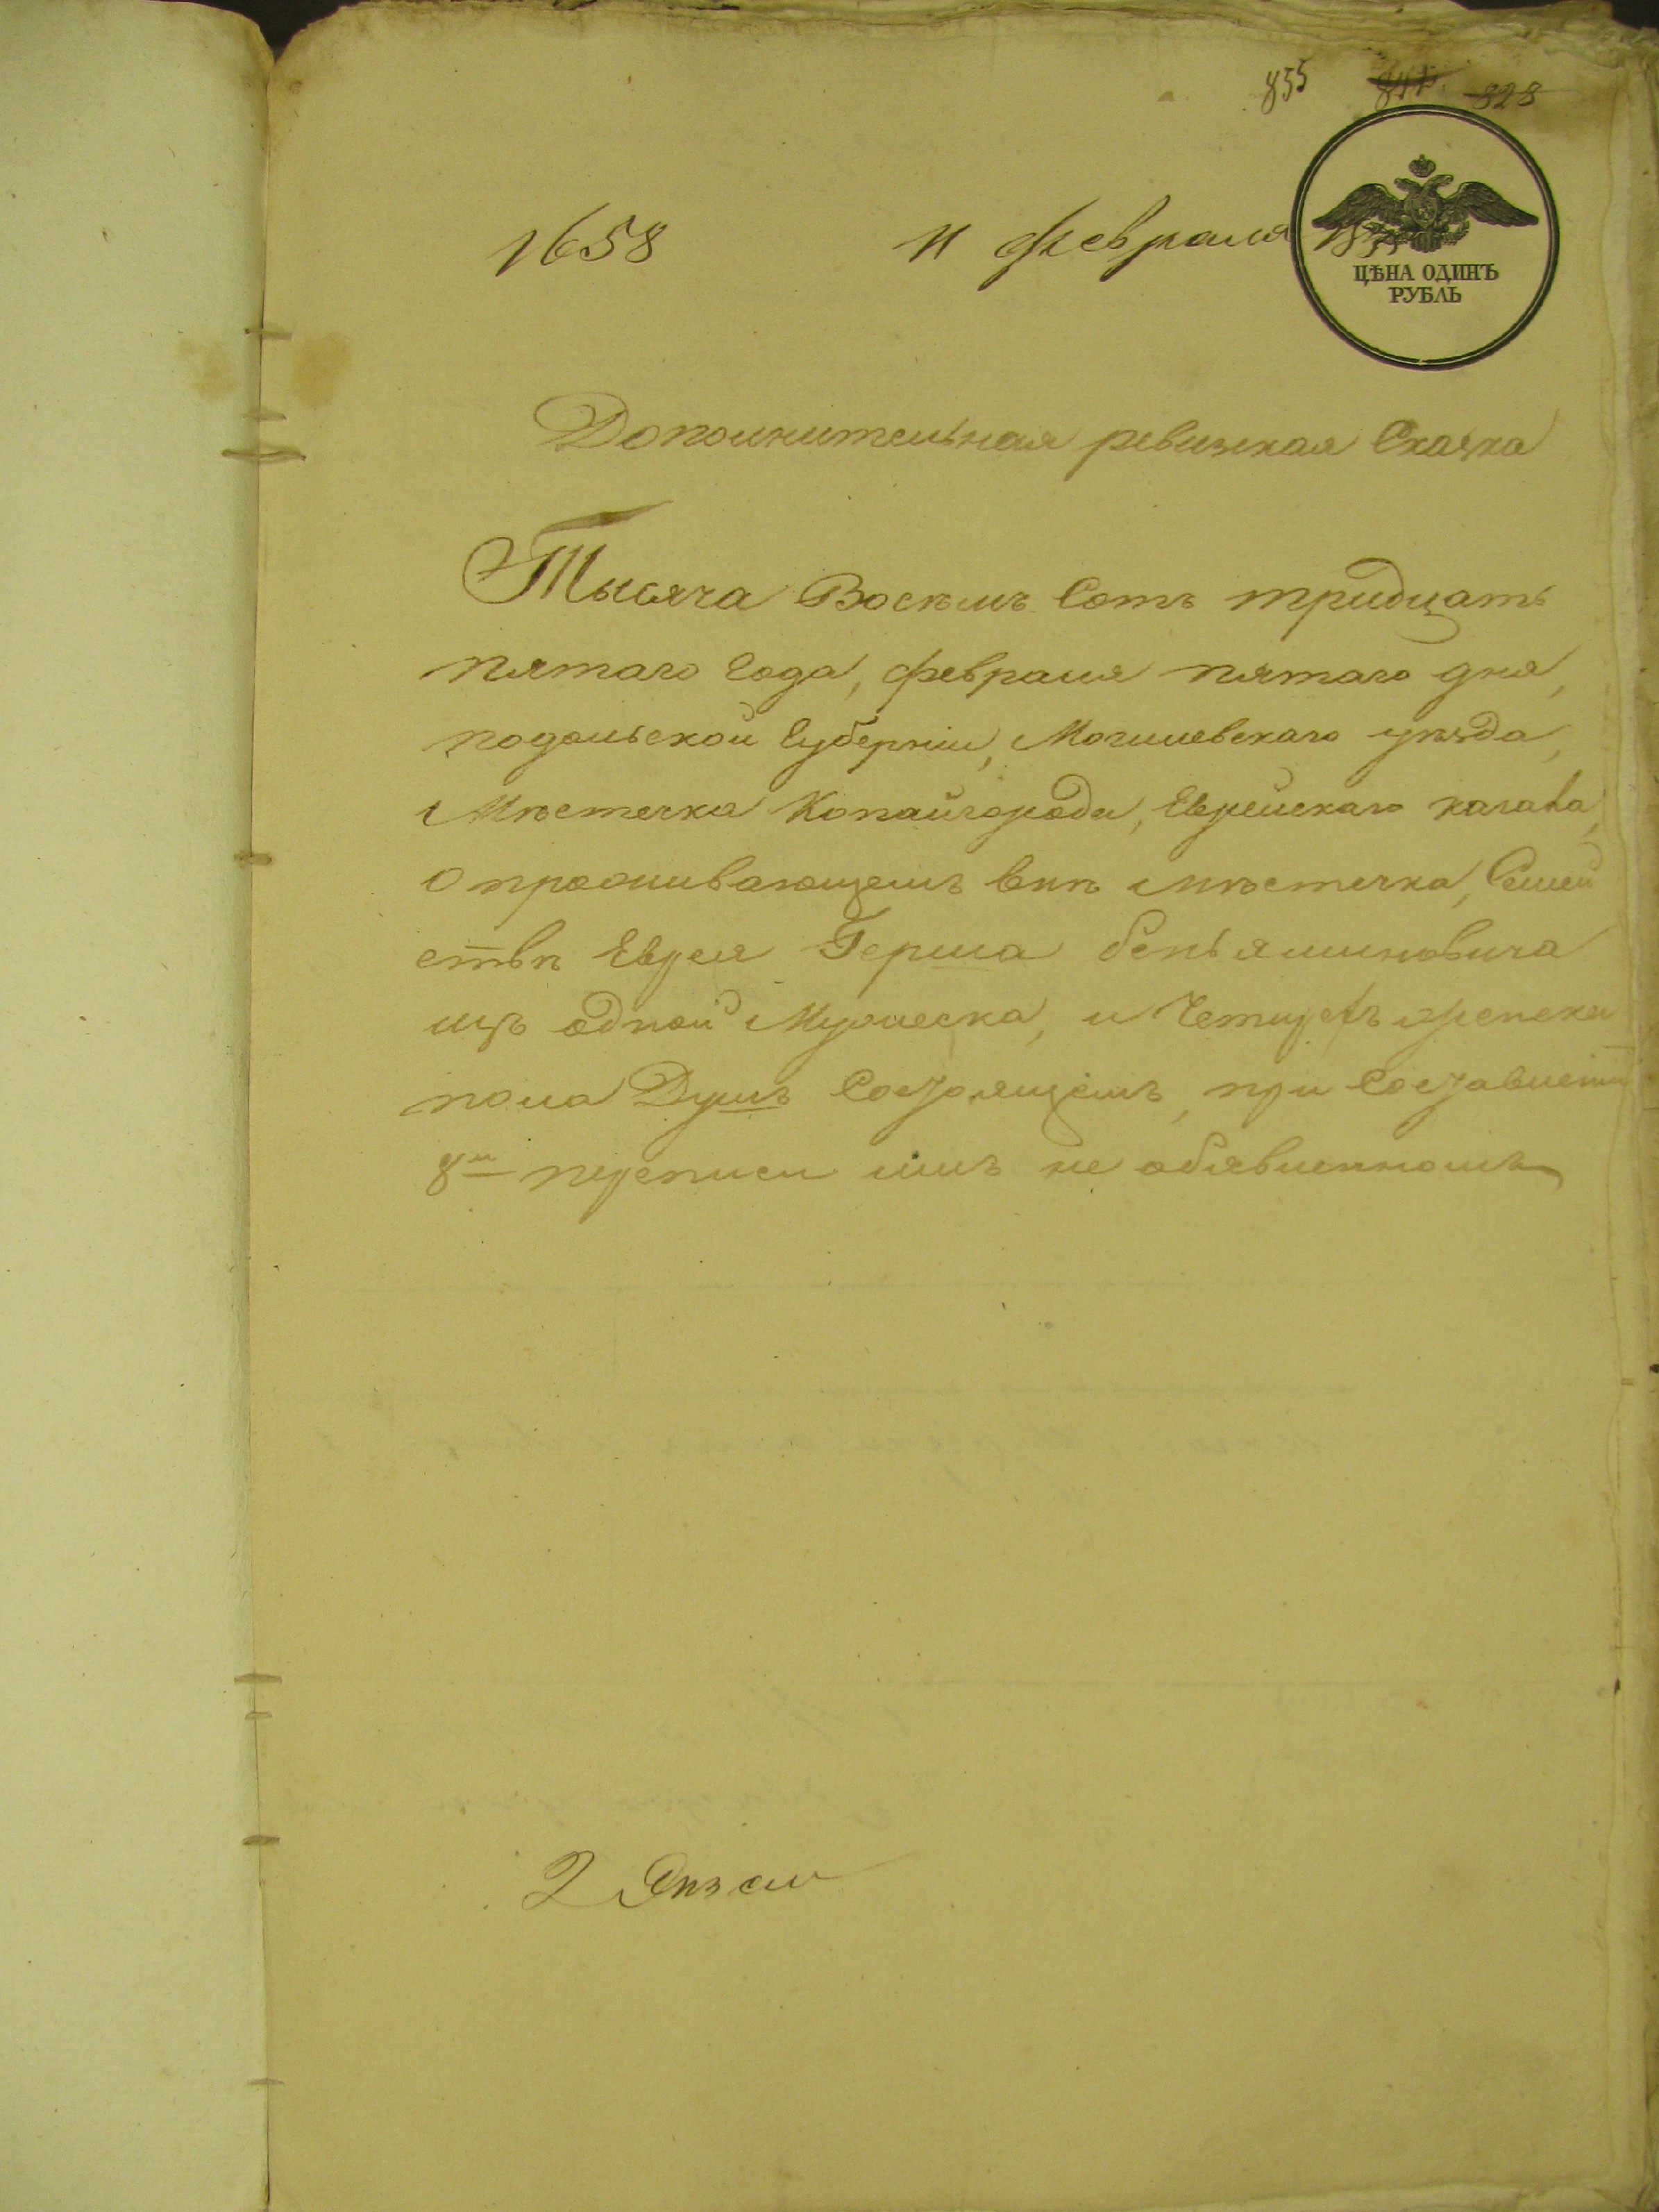 855 828
1658 11 февраля 1835
ЦѢНА ОДИНЪ
РУБЛЬ
Дополнительная ревизкая Сказка
Тысяча Восѣмъ Сотъ тридцать
пятаго Года, февраля пятаго дня,
подольской Губерніи, Могилевскаго уѣзда,
Мѣстечка Копайгорода, Еврейскаго кагала,
О проживающемъ внѣ мѣстечка, Семей
ствѣ Еврея Герша беньяминовича
изъ одной Мужеска, и Четирехъ женска
пола Душъ Состоящемъ, при Составленіи
8й переписи имъ не обявленномъ
2 Экзем